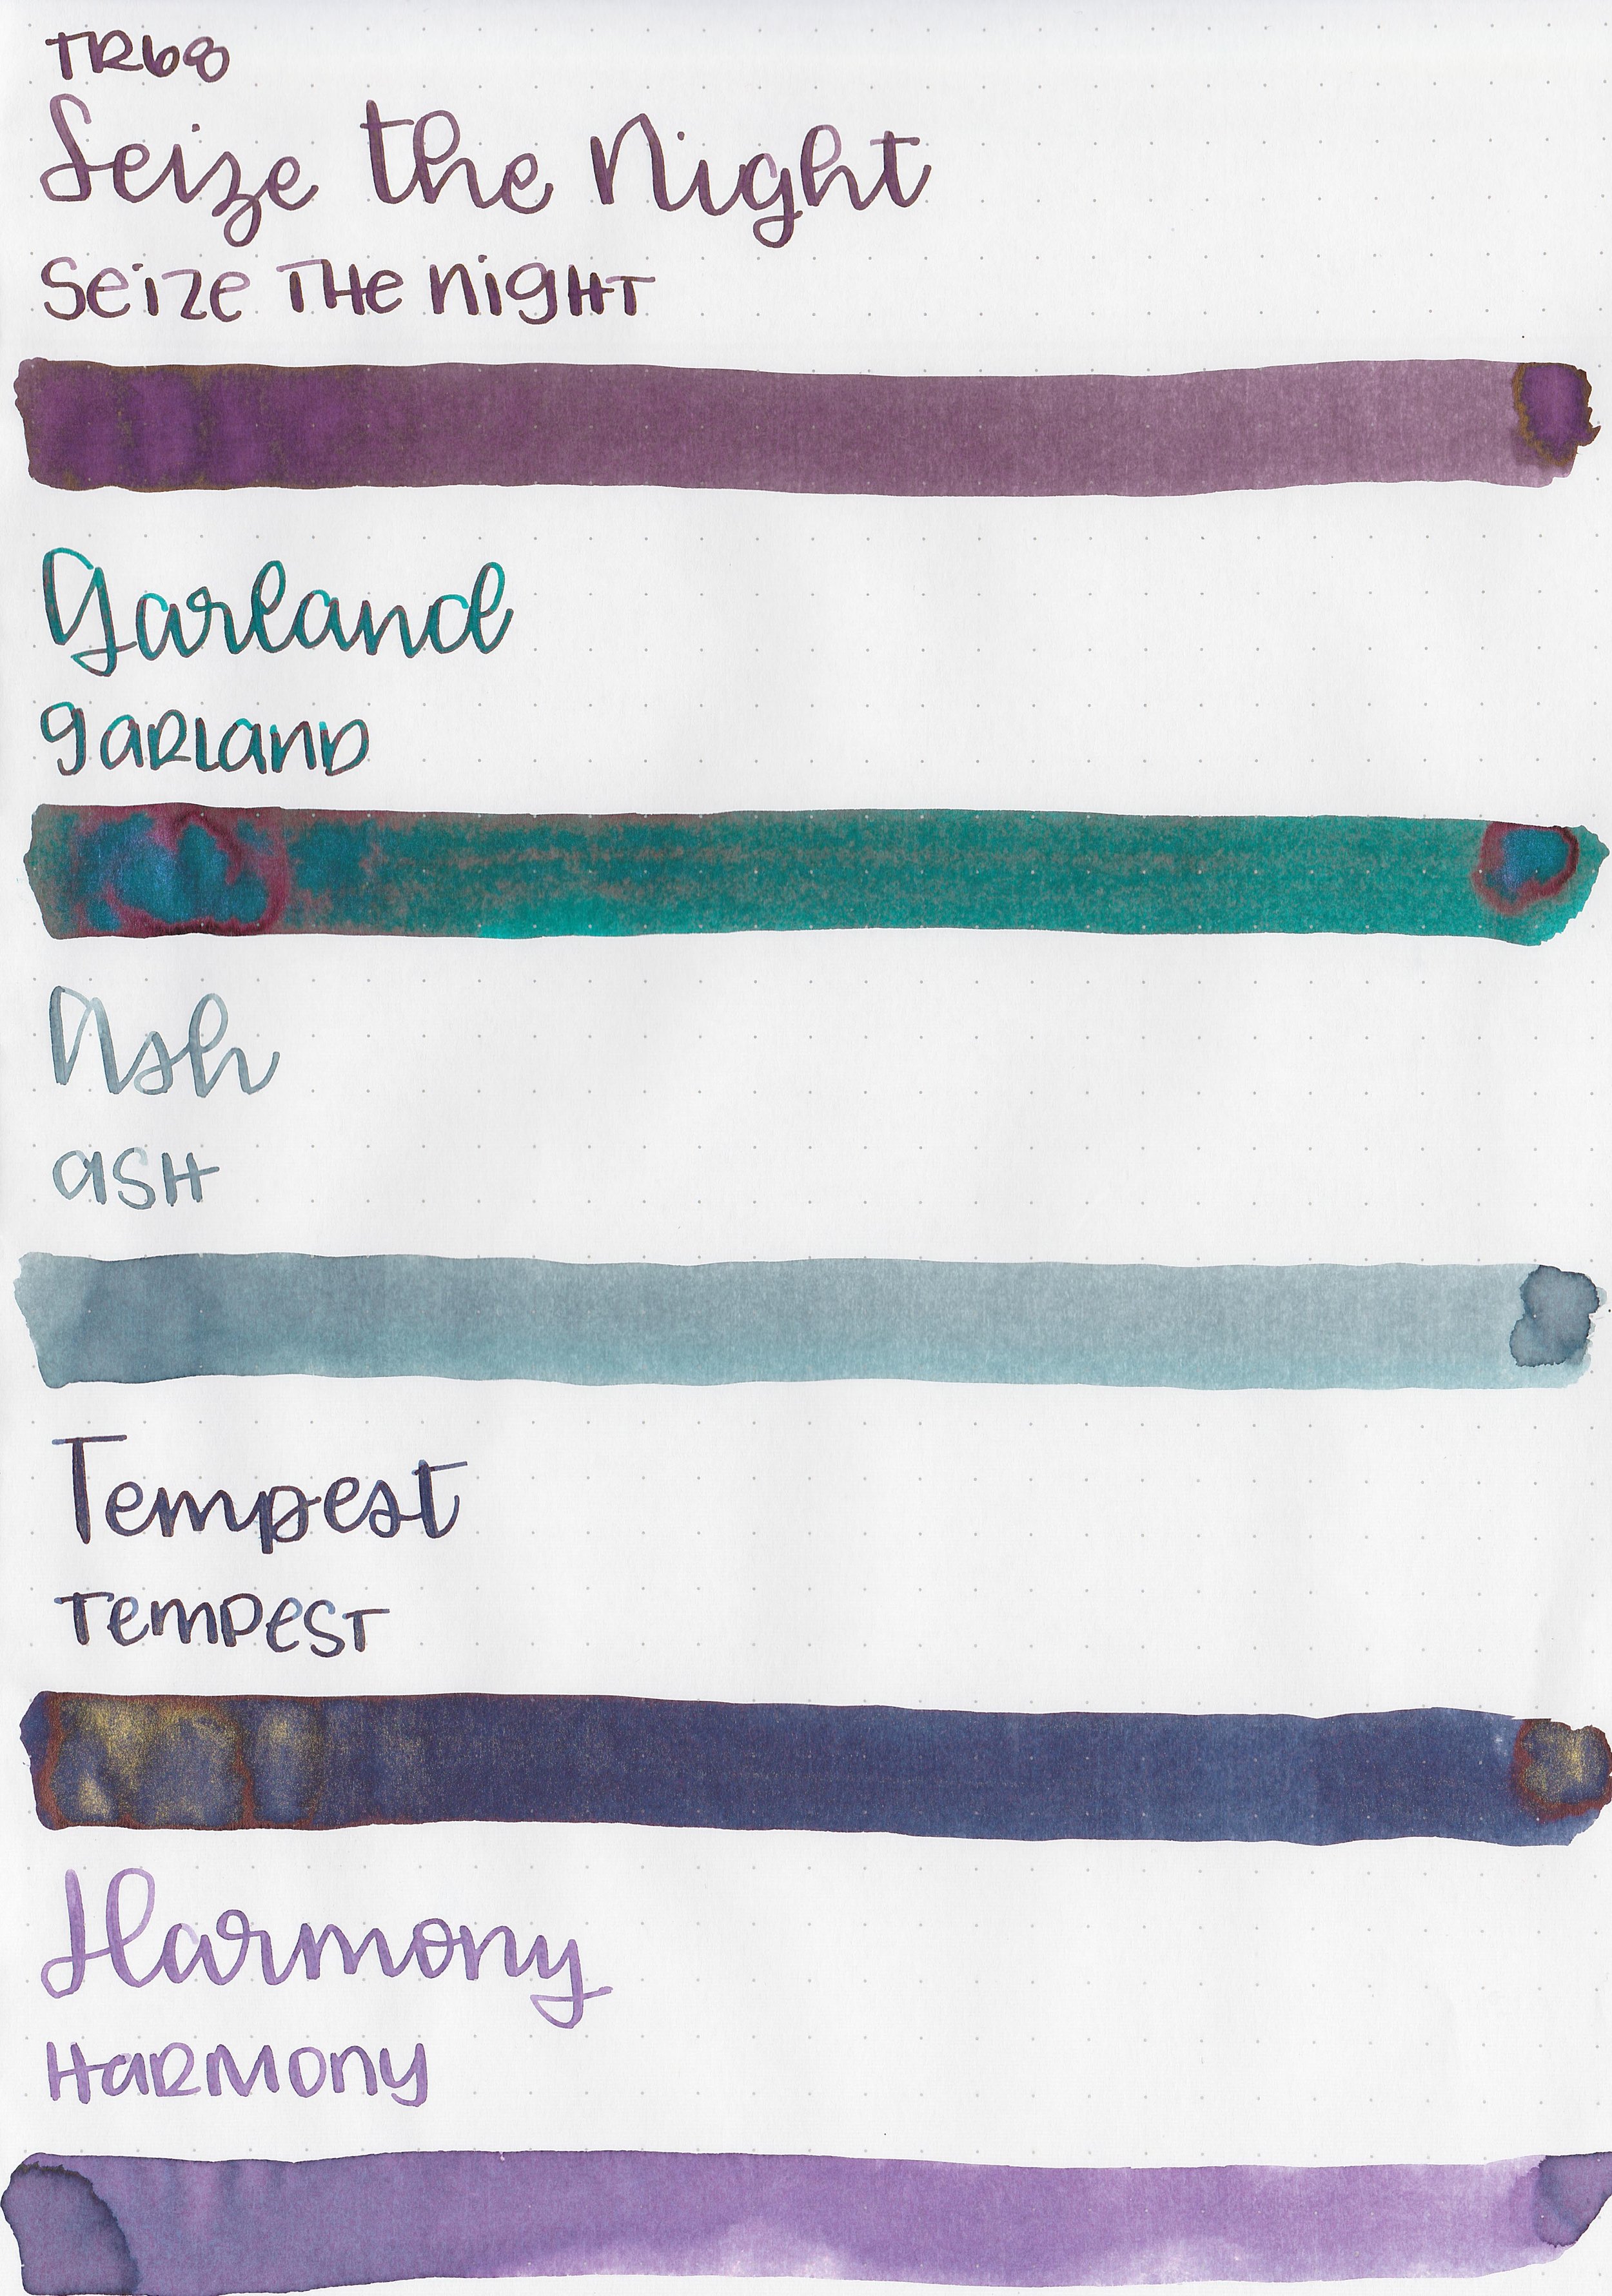 TR68
Seize the Night
Seize THe NigHT
Garland
gaRLanD
Ash
aSH
Tempest
TemPeST
Harmony
HaRMony